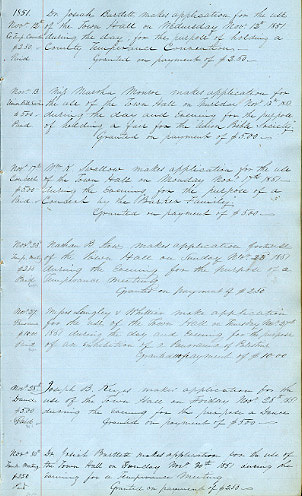 1851. Dr Josiah Bartlett makes application for the use
Novr 12th of the Town Hall on Wednesday Novr 12th 1851
during the day for the purpose of holding a
$2.50 County Temperance Convention.
Paid Granted on payment of $2.50
Novr 13 Miss Martha Monroe makes application for
the use of the Town Hall on Novr 13th 1851
$5.00 during the day and Evening for the purpose
Paid of holding a Fair for the Society
Granted on payment of $5.00
Novr 17th Wm R. Swallow makes application for the use
Concert of the Town Hall on Monday Novr 17th 1851
$5.00 during the Evening for the purpose of a
Paid Concert by the Family
Granted on payment of $5.00
Novr 23 Nathan H. makes application for the use
of the Town Hall on Sunday Novr 23d 1851
$2.50 during the Evening for the purpose of a
Paid Temperance Meeting
Granted on payment of $2.50
Novr 27 Messrs Langley & make application
for the use of the Town Hall on Thursday Novr 27th
1851 during the day and Evening for the purpose
Paid of an exhibition of a Panorama of
Granted on payment of $10.00
Novr 28th Joseph B. Keyes makes application for the
Dance use of the Town Hall on Friday Novr 28th 1851
$5.00 during the evening for the purpose a Dance
Granted on payment of $5.00
Novr 30th Dr Josiah Bartlett makes application for the use of
the Town Hall on Sunday Novr 30th 1851 during the
$2.50 Evening for a Temperance Meeting
Paid Granted on payment of $2.50